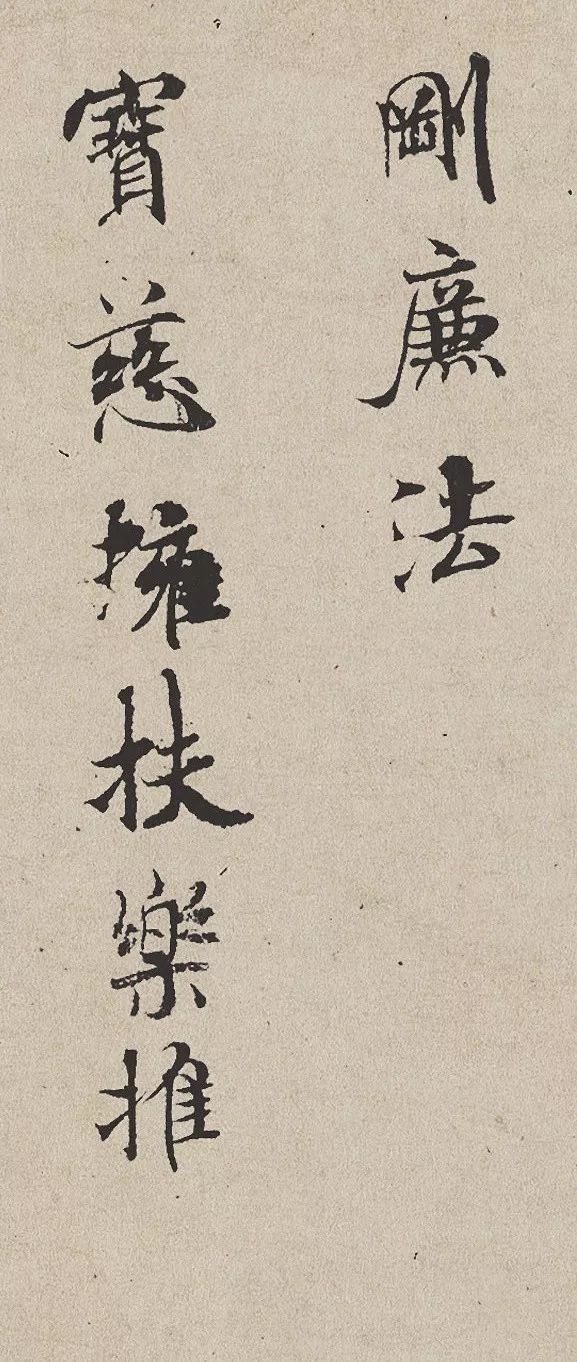 剛廉法
寶慈擁扶樂推